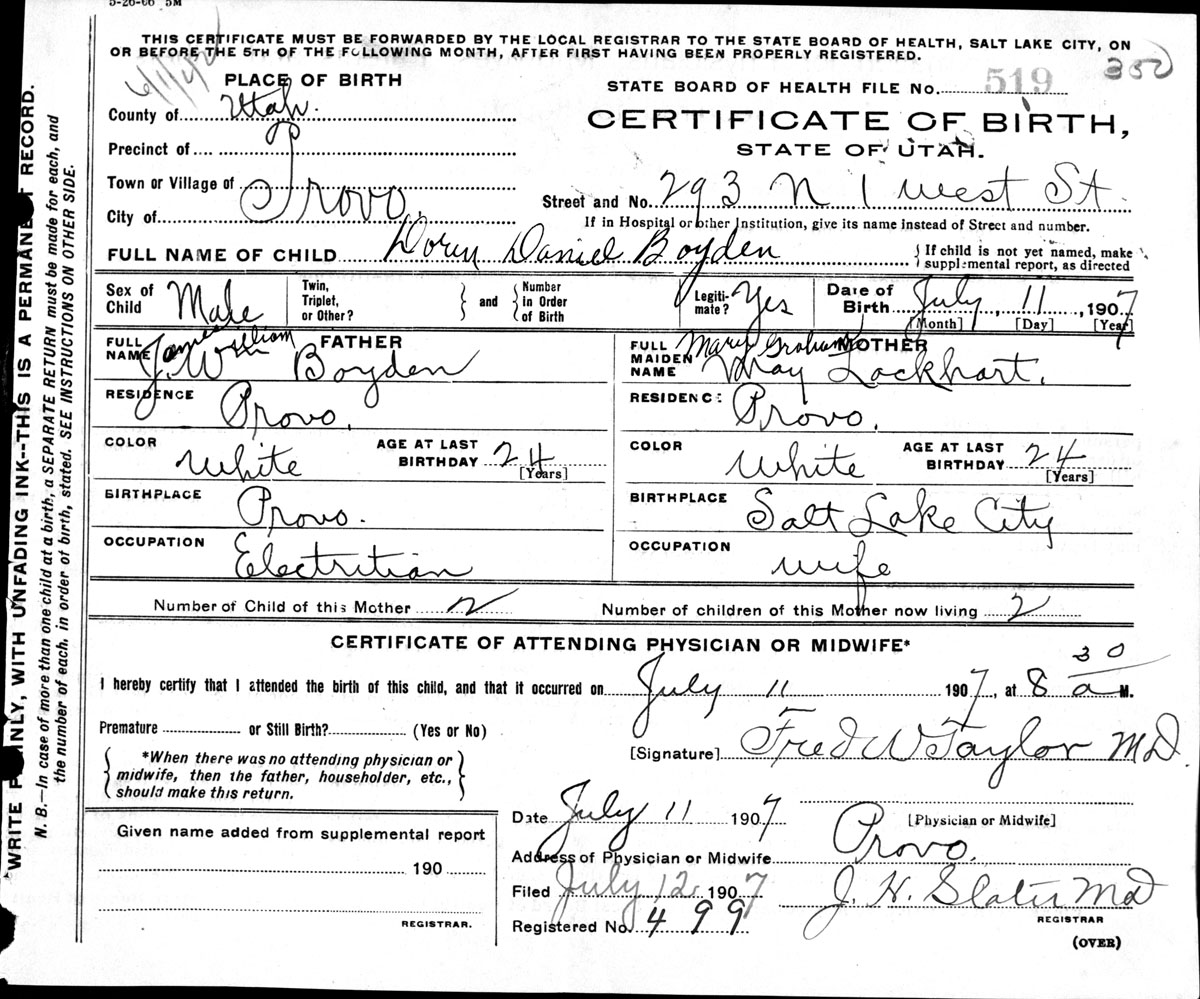 5-26-06 5M
THIS CERTIFICATE MUST BE FORWARDED BY THE LOCAL REGISTRAR TO THE STATE BOARD OF HEALTH, SALT LAKE CITY, ON
OR BEFORE THE 5TH OF THE FOLLOWING MONTH, AFTER FIRST HAVING BEEN PROPERLY REGISTERED.
350
PLACE OF BIRTH
STATE BOARD OF HEALTH FILE No. 519
County of Utah.
CERTIFICATE OF BIRTH,
STATE OF UTAH.
Precinct of
Town or Village of
City of Provo.
Street and No. 293 N 1 west St.
If in Hospital or other Institution, give its name instead of Street and number.
FULL NAME OF CHILD Daniel Boyden
If child is not yet named, make supplemental report, as directed
Sex of Child Male
Twin, Triplet, or Other? and Number in Order of Birth
Legitimate? Yes
Date of Birth July, 11, 1907
[Month] [Day] [Year]
FATHER
FULL NAME James William
J. W. Boyden
MOTHER
FULL MAIDEN NAME Mary Graham
May Lockhart.
RESIDENCE Provo.
RESIDENCE Provo.
COLOR White AGE AT LAST BIRTHDAY 24 [Years]
COLOR White AGE AT LAST BIRTHDAY 24 [Years]
BIRTHPLACE Provo.
BIRTHPLACE Salt Lake City
OCCUPATION Electritian
OCCUPATION wife
Number of Child of this Mother 2 Number of children of this Mother now living 2
CERTIFICATE OF ATTENDING PHYSICIAN OR MIDWIFE*
I hereby certify that I attended the birth of this child, and that it occurred on July 11 1907, at 8 30 a M.
Premature or Still Birth? (Yes or No)
[Signature] Fred W Taylor MD.
*When there was no attending physician or
midwife, then the father, householder, etc.,
should make this return.
Date July 11 1907
[Physician or Midwife]
Given name added from supplemental report
190
REGISTRAR.
Address of Physician or Midwife Provo.
Filed July 12, 1907 J. H. Slater MD
REGISTRAR
Registered No. 499
(OVER)
WRITE PLAINLY, WITH UNFADING INK--THIS IS A PERMANENT RECORD.
N. B.—In case of more than one child at a birth, a SEPARATE RETURN must be made for each, and
the number of each, in order of birth, stated. SEE INSTRUCTIONS ON OTHER SIDE.